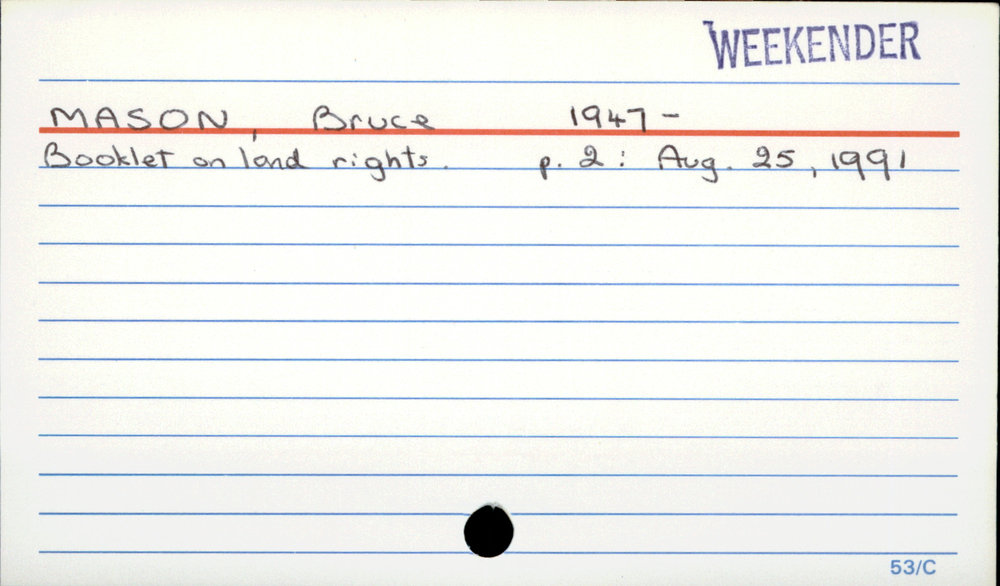 WEEKENDER
MASON, Bruce 1947-
Booklet on land rights. p. 2: Aug. 25, 1991
53/C